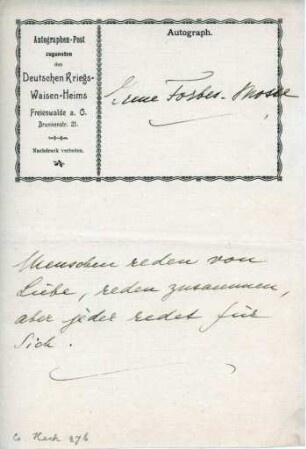 Autographen-Post
zugunsten
des
Deutschen Kriegs-
Waisen-Heims
Freienwalde a. O.
Brunnenstr. 21.
Nachdruck verboten.
Autograph.
Irene Forbes-Mosse
Menschen reden von
Liebe, reden zusammen,
aber jeder redet für
Sich.